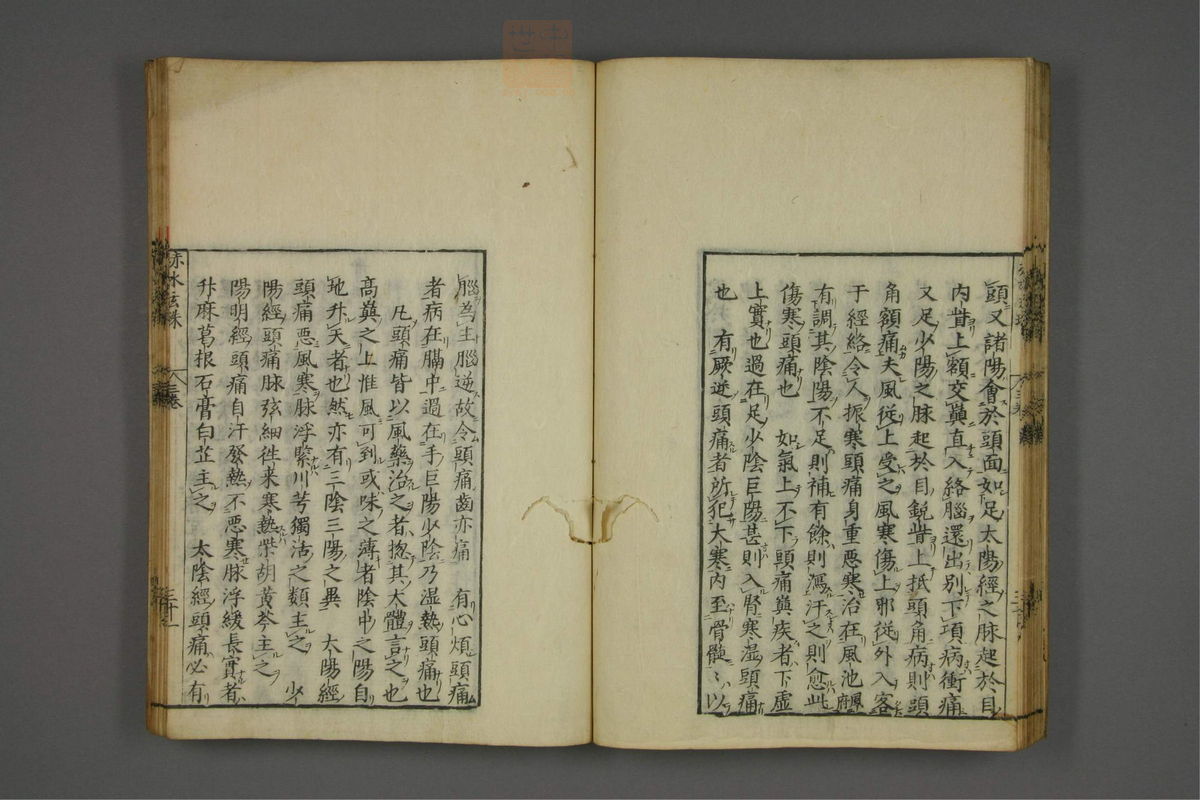 頭又諸陽會於頭面如足太陽經之脉起於目
内眥上額交巓直入絡腦還出別下項病衝痛
又足少陽之脉起於目鋭眥上抵頭角病則頭
角額痛夫風従上受之風寒傷上邪従外入客
于經絡令人振寒頭痛身重悪寒治在風池風府
有調其陰陽不足則補有餘則瀉汗之則愈此
傷寒頭痛也　如氣上不下頭痛巓疾者下虚
上實也過在足少陰巨陽甚則入腎寒湿頭痛
也　有厥逆頭痛者所犯大寒内至骨髓〻以
腦為主腦逆故令頭痛齒亦痛　有心煩頭痛
者病在膈中過在手巨陽少陰乃湿熱頭痛也
凡頭痛皆以風藥治之者揔其大體言之也
髙巓之上惟風可到或味之薄者陰中之陽自
地升天者也然亦有三陰三陽之異　太陽經
頭痛悪風寒脉浮緊川芎獨活之類主之　少
陽經頭痛脉弦細徃来寒熱柴胡黄芩主之
陽明經頭痛自汗發熱不悪寒脉浮緩長實者
升麻葛根石膏白芷主之　太陰經頭痛必有
赤水玄珠　三卷　三十一